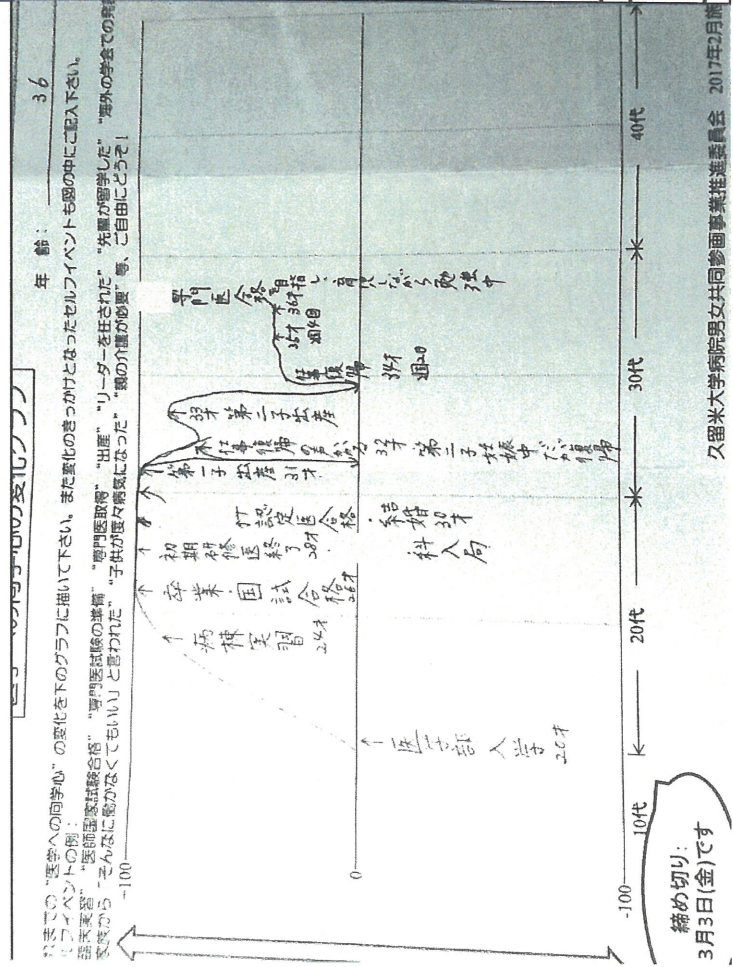 医学への向学心の変化グラフ
年齢： 36
れまでの“医学への向学心”の変化を下のグラフに描いて下さい。また変化のきっかけとなったセルフイベントも図の中にご記入下さい。
ルフイベントの例：
臨床実習” “医師国家試験合格” “専門医試験の準備” “専門医取得” “出産” “リーダーを任された” “先輩が留学した” “海外の学会での発
家族から「そんなに働かなくてもいい」と言われた” “子供が度々病気になった” “親の介護が必要” 等、ご自由にどうぞ！
100
0
-100
↑医学部入学 20才
↑病棟実習 24才
↑卒業・国試合格 26才
↑初期研修医終了 28才
科入局
認定医合格・結婚 30才
第一子出産 31才
仕事復帰の声かかる 32才 第二子妊娠中だが復帰
33才 第二子出産
仕事復帰 34才 週2日
35才 週4日
36才
専門医合格を目指し、育児しながら勉強中
10代
20代
30代
40代
締め切り：
3月3日(金)です
久留米大学病院男女共同参画事業推進委員会 2017年2月施